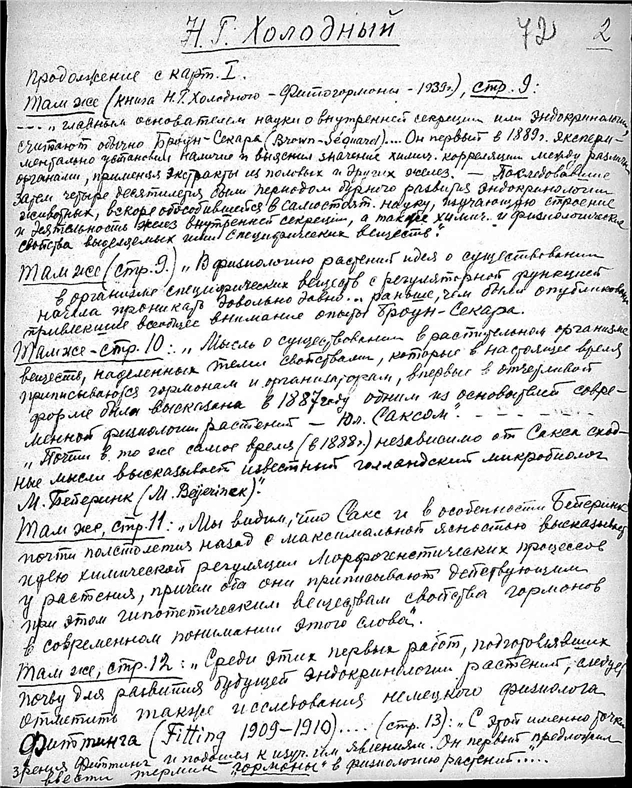 Н.Г. Холодный 72 2
Продолжение с карт. I.
Там же (книга Н.Г. Холодного - Фитогормоны - 1939г.), стр. 9:
.... "главным основателем науки о внутренней секреции или эндокринологии,
считают обычно Броун-Секара (Brown-Séquard).... Он первый в 1889г. экспери-
ментально установил наличие и выяснил значение химич. корреляции между различн.
органами, применяя экстракты из половых и других желез. — Последовавшие
затем четыре десятилетия были периодом бурного развития эндокринологии
животных, вскоре обособившейся в самостоят. науку, изучающую строение
и деятельность желез внутренней секреции, а также химич. и физиологические
свойства выделяемых ими специфических веществ".
Там же (стр. 9.) "В физиологию растений идея о существовании
в организме специфических веществ с регуляторной функцией
начала проникать довольно давно... раньше, чем были опубликованы
привлекшие всеобщее внимание опыты Броун-Секара.
Там же - стр. 10: "Мысль о существовании в растительном организме
веществ, наделенных теми свойствами, которые в настоящее время
приписываются гормонам и организаторам, впервые в отчетливой
форме была высказана в 1887 году одним из основателей совре-
менной физиологии растений — Юл. Саксом". - - - - - -
"Почти в то же самое время (в 1888г.) независимо от Сакса сход-
ные мысли высказывает известный голландский микробиолог
М. Бейеринк (M. Beijerinck)".
Там же, стр. 11: "Мы видим, что Сакс и в особенности Бейеринк
почти полстолетия назад с максимальной ясностью высказывают
идею химической регуляции морфогенетических процессов
у растения, причем оба они приписывают действующим
при этом гипотетическим веществам свойства гормонов
в современном понимании этого слова".
Там же, стр. 12: "Среди этих первых работ, подготовлявших
почву для развития будущей эндокринологии растений, следует
отметить также исследования немецкого физиолога
Фиттинга (Fitting 1909-1910).... (стр. 13): "С этой именно точки
зрения Фиттинг и подошел к изуч. явлениям. Он первый предложил
ввести термин "гормоны" в физиологию растений".....